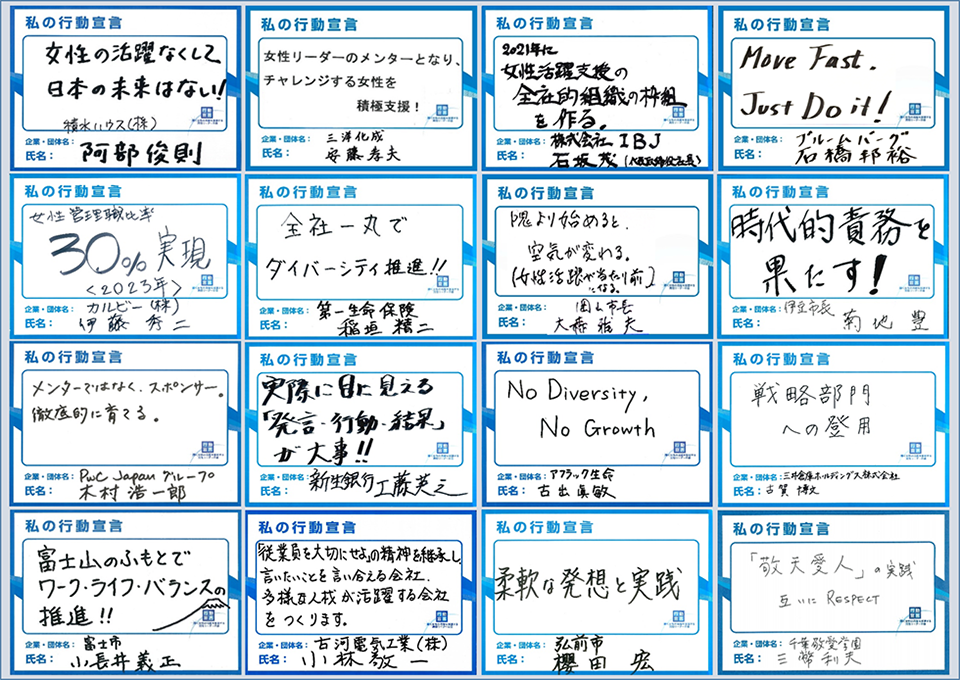 私の行動宣言
女性の活躍なくして
日本の未来はない!
積水ハウス(株)
企業・団体名:
氏名: 阿部俊則
私の行動宣言
女性リーダーのメンターとなり、
チャレンジする女性を
積極支援!
企業・団体名: 三洋化成
氏名: 安藤孝夫
私の行動宣言
2021年に
女性活躍支援の
全社的組織の枠組
を作る。
企業・団体名: 株式会社IBJ
氏名: 石坂茂(代表取締役社長)
私の行動宣言
Move Fast.
Just Do it!
企業・団体名: ブルームバーグ
氏名: 石橋邦裕
私の行動宣言
女性管理職比率
30%実現
<2023年>
企業・団体名: カルビー(株)
氏名: 伊藤秀二
私の行動宣言
全社一丸で
ダイバーシティ推進!!
企業・団体名: 第一生命保険
氏名: 稲垣精二
私の行動宣言
隗より始めると、
空気が変わる。
[女性活躍が当たり前]
になる。
企業・団体名: 岡山市長
氏名: 大森雅夫
私の行動宣言
時代的責務を
果たす!
企業・団体名: 伊豆市長
氏名: 菊地豊
私の行動宣言
メンターではなく、スポンサー。
徹底的に育てる。
企業・団体名: PwC Japanグループ
氏名: 木村浩一郎
私の行動宣言
実際に目に見える
「発言・行動・結果」
が大事!!
企業・団体名: 新生銀行
氏名: 工藤英之
私の行動宣言
No Diversity,
No Growth
企業・団体名: アフラック生命
氏名: 古出眞敏
私の行動宣言
戦略部門
への登用
企業・団体名: 三井倉庫ホールディングス株式会社
氏名: 古賀博文
私の行動宣言
富士山のふもとで
ワーク・ライフ・バランスの
推進!!
企業・団体名: 富士市
氏名: 小長井義正
私の行動宣言
「従業員を大切にせよ」の精神を継承し、
言いたいことを言い合える会社、
多様な人材が活躍する会社
をつくります。
企業・団体名: 古河電気工業(株)
氏名: 小林敬一
私の行動宣言
柔軟な発想と実践
企業・団体名: 弘前市
氏名: 櫻田宏
私の行動宣言
「敬天愛人」の実践
互いにRESPECT
企業・団体名: 千葉敬愛学園
氏名: 三幣利夫